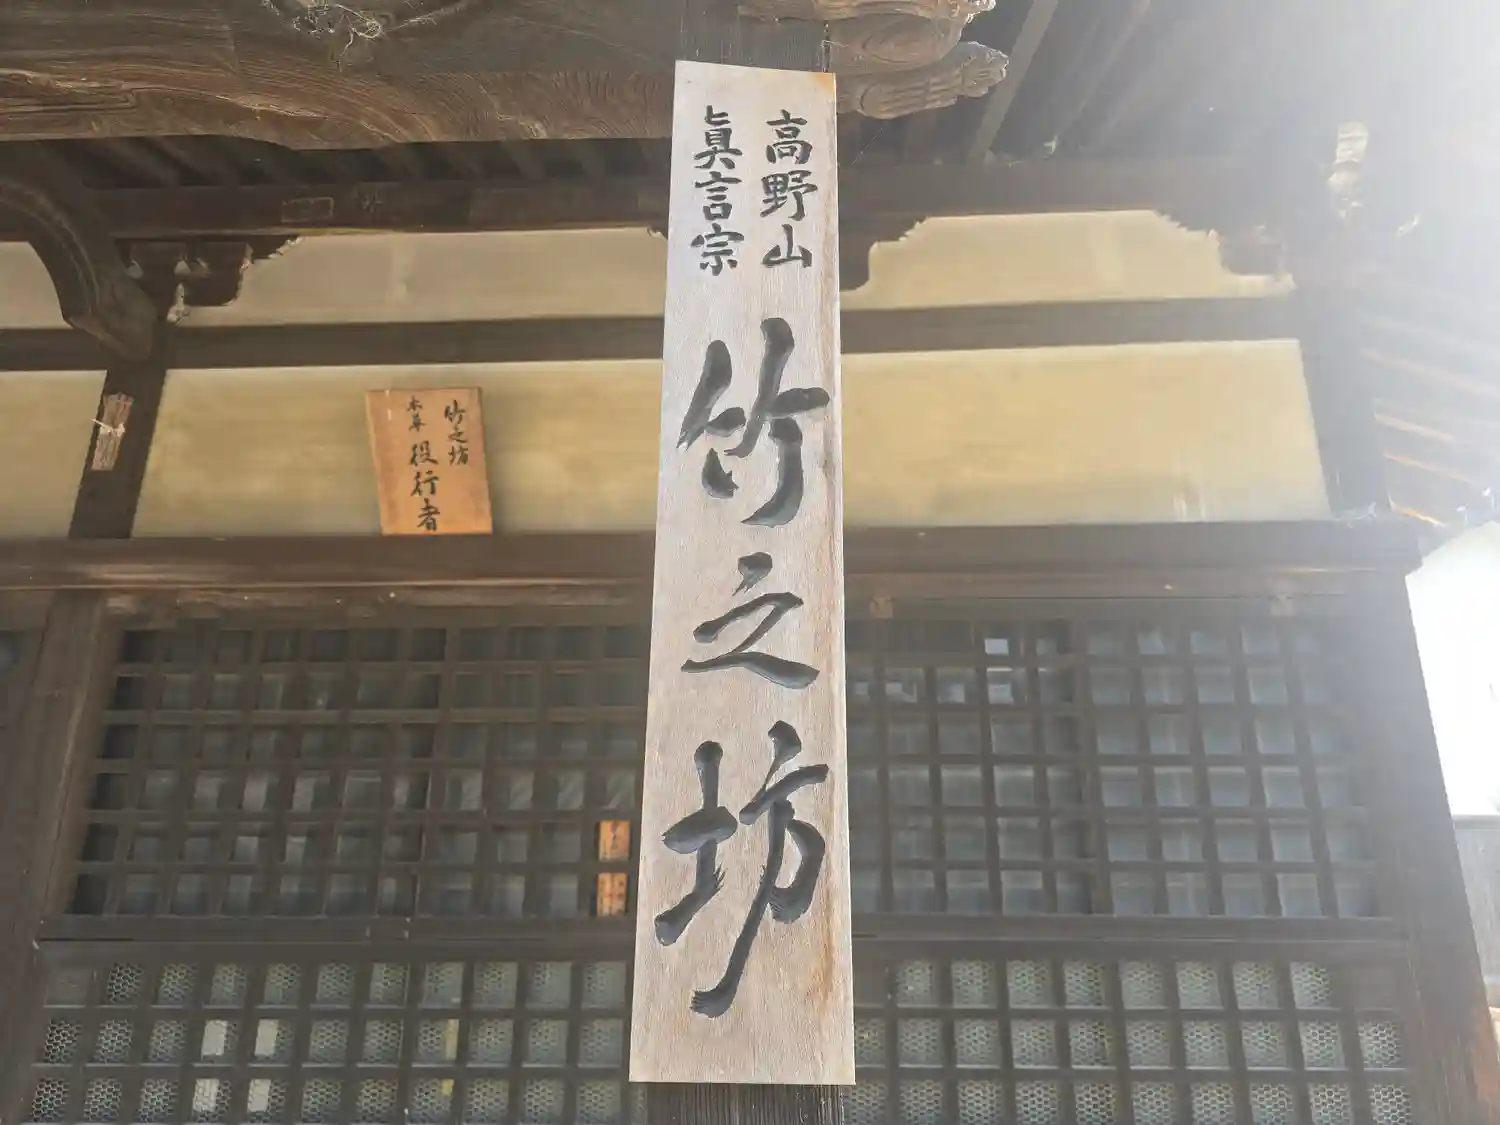 高野山
眞言宗
竹之坊
竹之坊
本尊 役行者